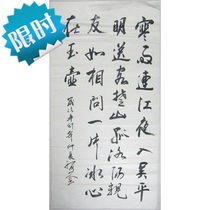 限时
寒雨連江夜入吴平
明送客楚山孤洛陽親
友如相問一片冰心
在玉壺